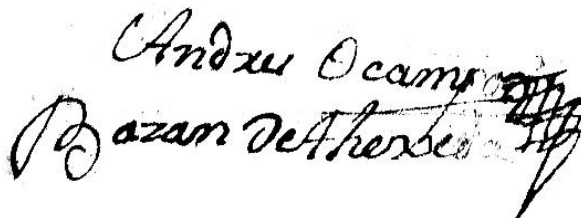 Andres Ocampo
Bazan de Thexeda